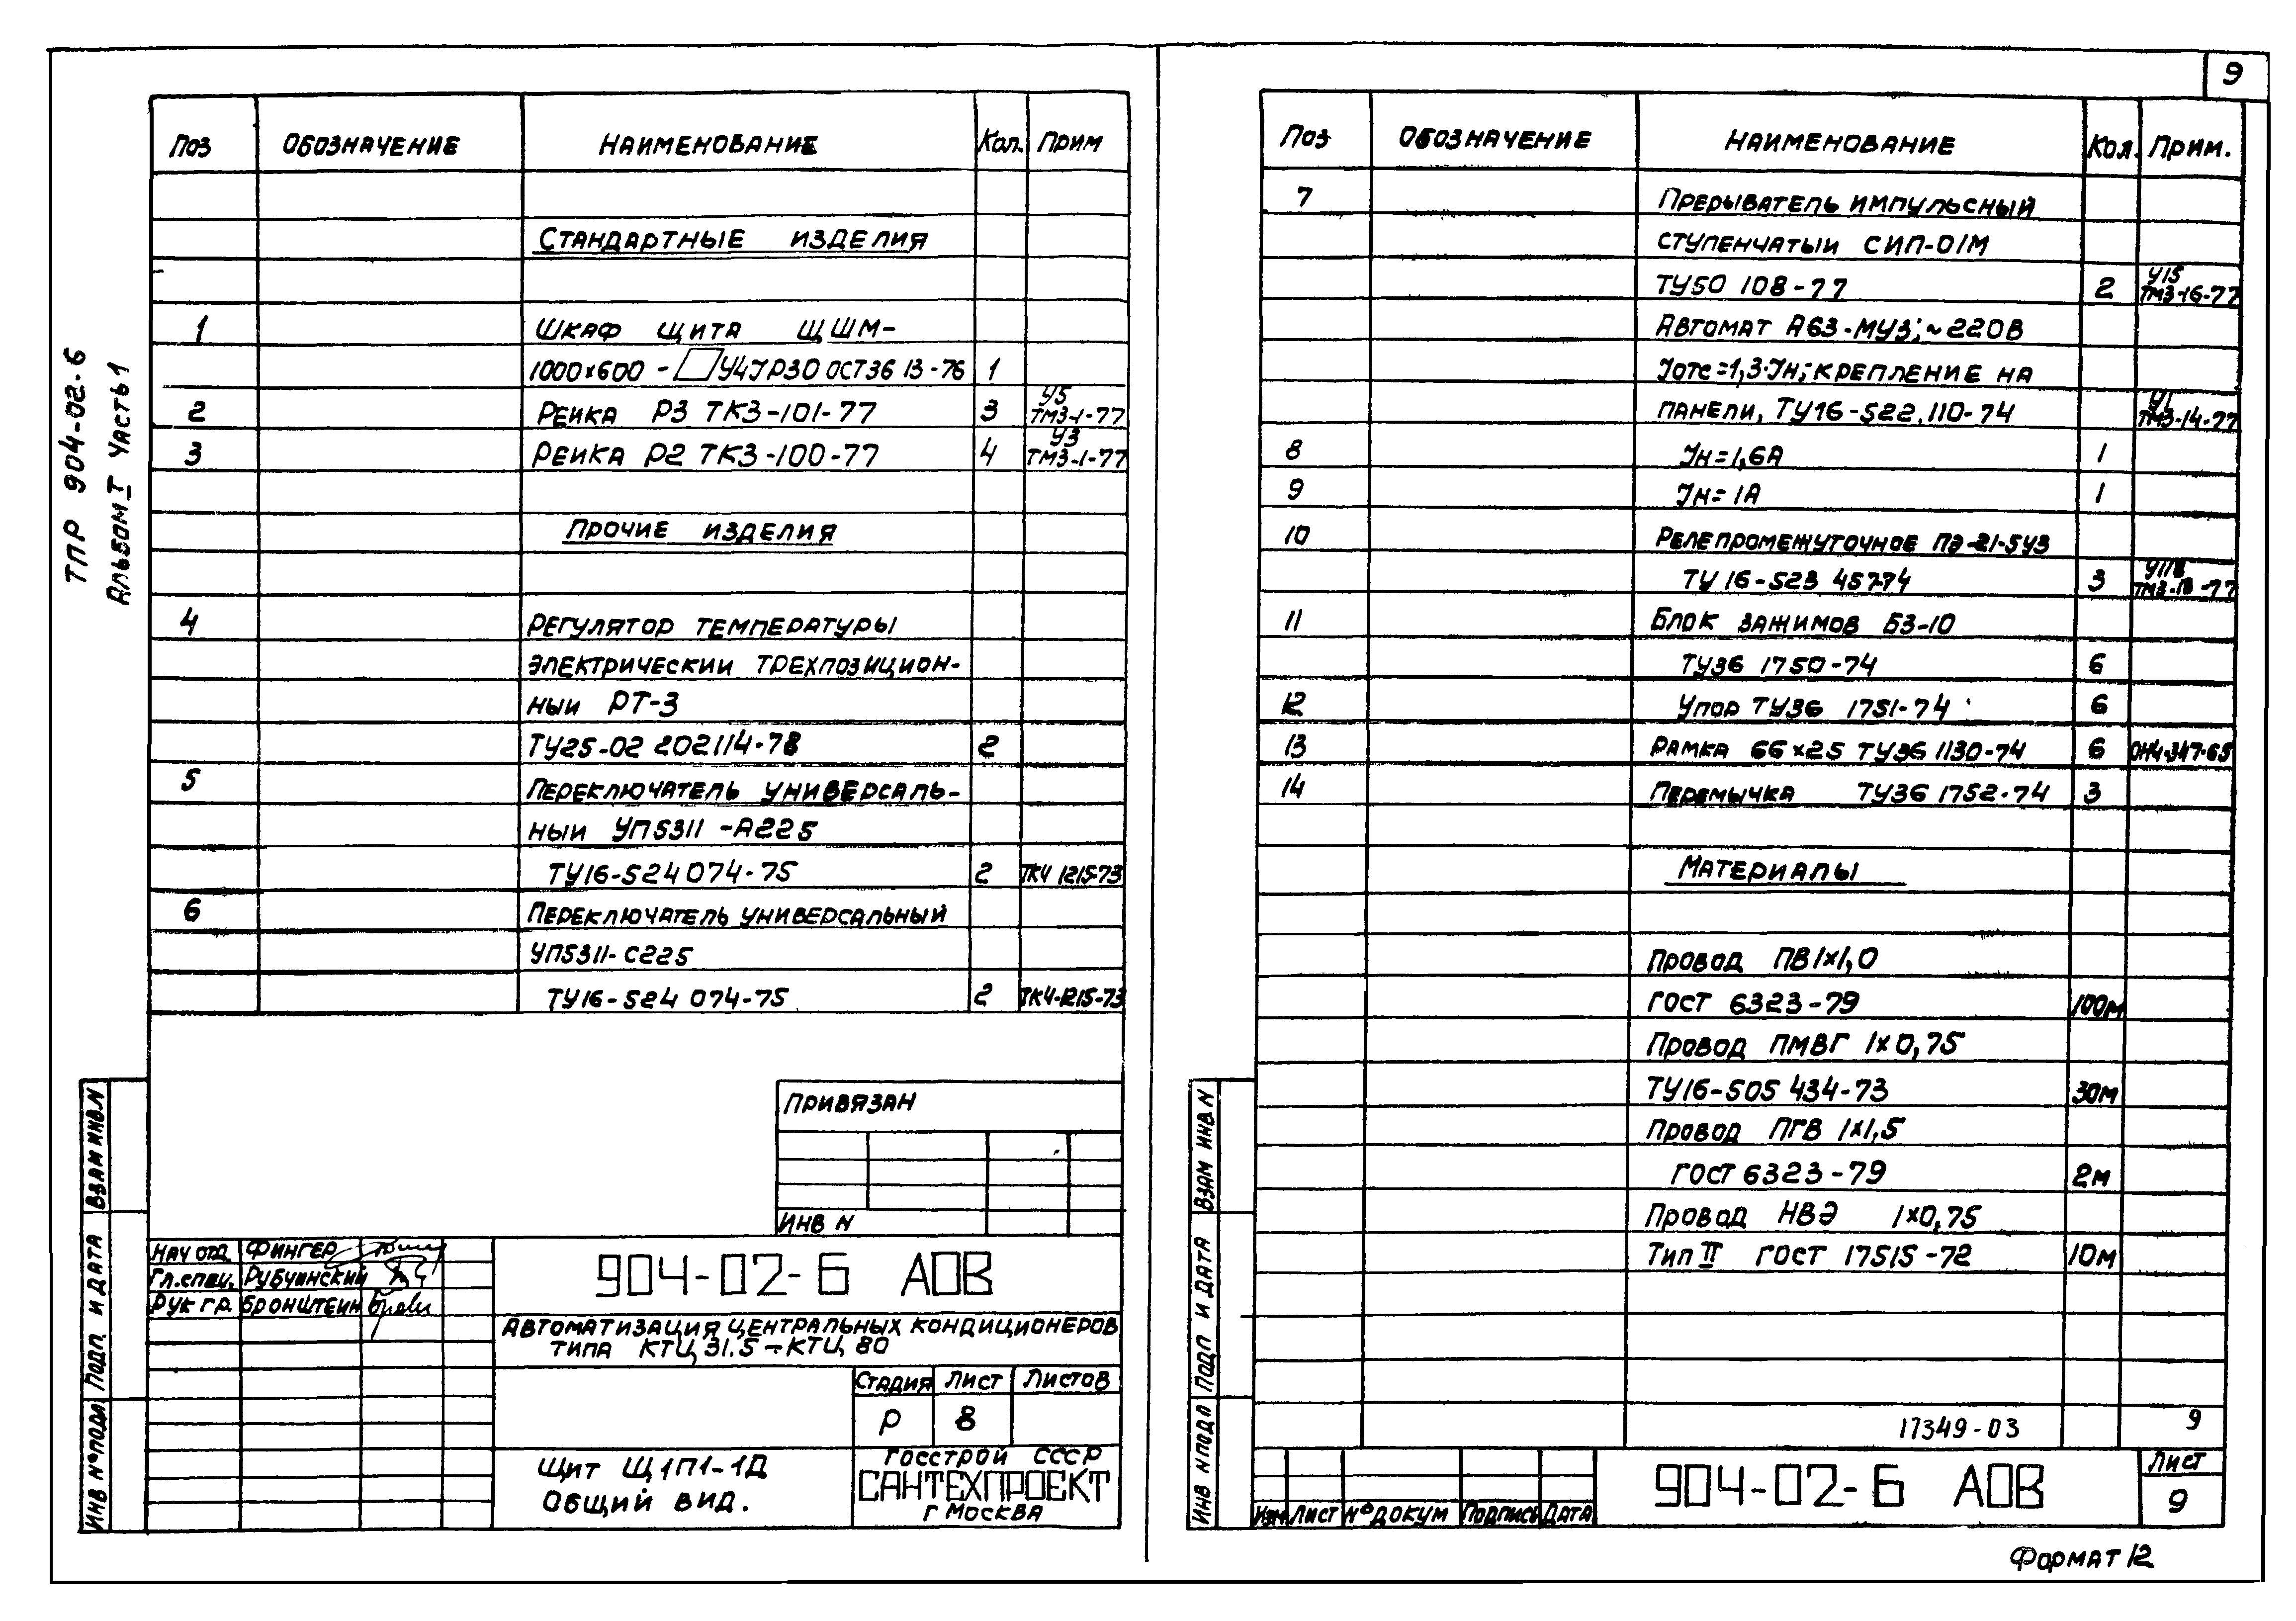 9
ТПР 904-02-6
Альбом I Часть 1
Поз ОБОЗНАЧЕНИЕ НАИМЕНОВАНИЕ Кол. Прим
Стандартные изделия
1 Шкаф щита ЩШМ-
1000×600 - У4JР30 ОСТ36 13-76 1
2 Рейка Р3 ТК3-101-77 3 У5 ТМ3-1-77
3 Рейка Р2 ТК3-100-77 4 У3 ТМ3-1-77
Прочие изделия
4 Регулятор температуры
электрический трехпозицион-
ный РТ-3
ТУ25-02 202114-78 2
5 Переключатель универсаль-
ный УП5311-А225
ТУ16-524 074-75 2 ТК4 1215-73
6 Переключатель универсальный
УП5311-С225
ТУ16-524 074-75 2 ТК4-1215-73
Привязан
Инв N
Нач отд Фингер
Гл.спец. Рубчинский
Рук гр. Бронштейн
904-02-6 АОВ
Автоматизация центральных кондиционеров
типа КТЦ 31.5 – КТЦ 80
Стадия Лист Листов
Р 8
Щит Щ1П1-1Д
Общий вид.
Госстрой СССР
САНТЕХПРОЕКТ
г Москва
Взам инв. N
Подп и дата
Инв № подл
Поз ОБОЗНАЧЕНИЕ НАИМЕНОВАНИЕ Кол. Прим.
7 Прерыватель импульсный
ступенчатый СИП-01М
ТУ50 108-77 2 У15 ТМ3-16-77
Автомат А63-МУ3; ~220В
Jотс=1,3·Jн; крепление на
панели, ТУ16-522.110-74 У1 ТМ3-14-77
8 Jн=1,6А 1
9 Jн=1А 1
10 Реле промежуточное ПЭ-21-5У3
ТУ 16-523 457-74 3 ТМ3-13-77
11 Блок зажимов БЗ-10
ТУ36 1750-74 6
12 Упор ТУ36 1751-74 6
13 Рамка 66×25 ТУ36 1130-74 6 ОН4-347-65
14 Перемычка ТУ36 1752-74 3
Материалы
Провод ПВ1×1,0
ГОСТ 6323-79 100м
Провод ПМВГ 1×0,75
ТУ16-505 434-73 30м
Провод ПГВ 1×1,5
ГОСТ 6323-79 2м
Провод НВЭ 1×0,75
Тип II ГОСТ 17515-72 10м
17349-03 9
Взам инв N
Подп и дата
Инв N подл
Изм Лист № докум Подпись Дата
904-02-6 АОВ
Лист
9
Формат 12